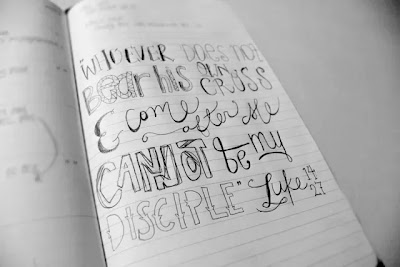 "WHOEVER DOES NOT
BEAR HIS OWN CROSS
& come after Me
CANNOT be my
DISCIPLE" Luke 14
27